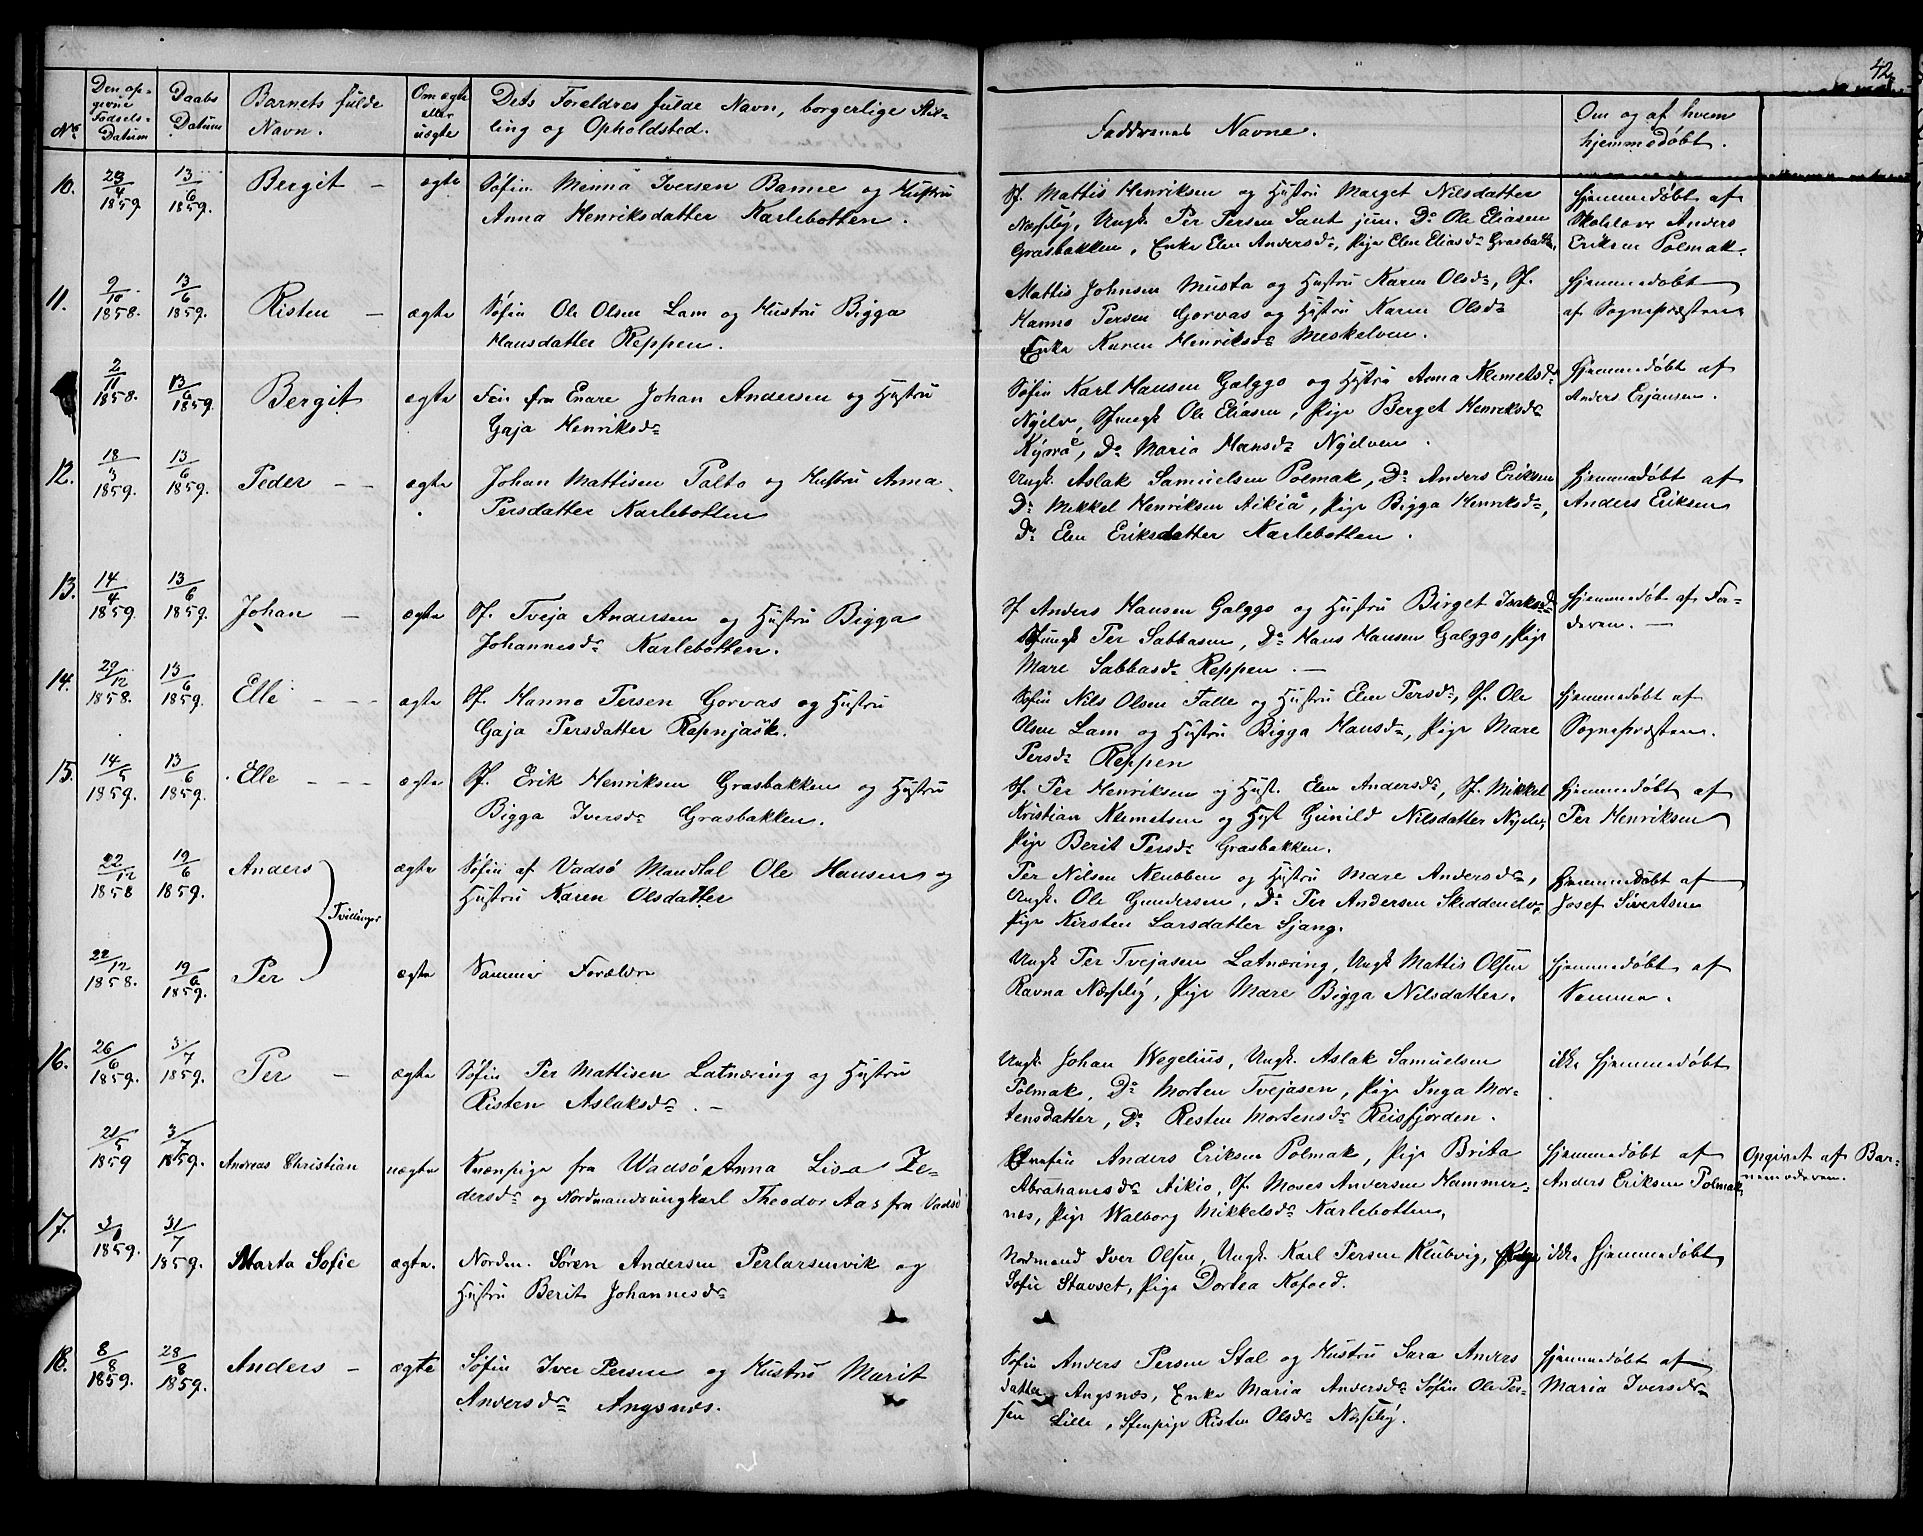 42
No. Den opgivne Fødsels-Datum Daabs Datum Barnets fulde Navn. Om ægte eller uægte Dets Foreldres fulde Navn, borgerlige Stilling og Opholdsted. Faddrenes Navne. Om og af hvem hjemmedøbt.
10. 23/4 1859 13/6 1859. Bergit – ægte Søfin Menna Iversen Banne og Hustru
Anna Henriksdatter Karlebotten.
Sf. Mattis Henriksen og Hustru Marget Nilsdatter
Næsseby, Ungk. Per Persen Saut jun. Do Ole Eliasen
Grasbakken, Enke Elen Andersdr, Pige Elen Eliasdr Grasbakken,
Hjemmedøbt af
Skolelærer Anders
Eriksen Polmak.
11. 9/10 1858. 13/6 1859. Risten – ægte Søfin Ole Olsen Lam og Hustru Bigga
Hansdatter Reppen.
Mattis Johnsen Musta og Hustru Karen Olsdr, Sf.
Hanno Persen Gorvas og Hustru Karen Olsdr
Enke Karen Henriksdr Meskelven.
Hjemmedøbt
af Sognepræsten
2/11 1858. 13/6 1859. Bergit ægte Fin fra Enare Johan Andersen og Hustru
Gaja Henriksdr
Søfin Karl Hansen Galggo og Hustru Anna Klemetsdr
Nyelv, Sf. ungk. Ole Eliasen, Pige Berget Henriksdr
Kyørå, Do Maria Hansdr Nyelven.
Hjemmedøbt af
Anders Erjansen.
12. 18/3 1859. 13/6 1859. Peder – – ægte Johan Mattisen Palto og Hustru Anna
Persdatter Karlebotten
Ungk. Aslak Samuelsen Polmak, Do Anders Eriksen
Do Mikkel Henriksen Aikiå, Pige Bigga Henriksdr,
Do Elen Eriksdatter Karlebotten.
Hjemmedøbt af
Anders Eriksen
13. 14/4 1859. 13/6 1859. Johan – ægte Sf. Tveja Andersen og Hustru Bigga
Johannesdr Karlebotten.
Sf Anders Hansen Galggo og Hustru Birget Isaksdr
Sf ungk Per Sabbasen, Do Hans Hansen Galggo, Pige
Mare Sabbasdr Reppen. –
Hjemmedøbt af Faderen. –
14. 29/12 1858. 13/6 1859. Elle – – – ægte Sf. Hanno Persen Gorvas og Hustru
Gaja Persdatter Repnjask.
Søfin Nils Olsen Falle og Hustru Elen Persdr, Sf. Ole
Olsen Lam og Hustru Bigga Hansdr, Pige Mare
Persdr Reppen
Hjemmedøbt af
Sognepræsten.
15. 14/5 1859. 13/6 1859. Elle – – – ægte Sf. Erik Henriksen Grasbakken og Hustru
Bigga Iversdr Grasbakken.
Sf. Per Henriksen og Hust. Elen Andersdr, Sf. Mikkel
Kristian Klemetsen og Hust Gunild Nilsdatter Nyelv,
Pige Berit Persdr Grasbakken.
Hjemmedøbt af
Per Henriksen
22/12 1858 19/6 1859. Anders ægte Søfin af Vadsø Mandtal Ole Hansen og
Hustru Karen Olsdatter
Tvillinger
Per Nilsen Klubben og Hustru Mare Andersdr,
Ungk. Ole Gundersen, Do Per Andersen Skiddenelv,
Pige Kirsten Larsdatter Sjang.
Hjemmedøbt af
Josef Sivertsen
22/12 1858. 19/6 1859. Per ægte Samme Forældre
Ungk Per Tvejasen Latnæring, Ungk Mattis Olsen
Ravna Næsseby, Pige Mare Bigga Nilsdatter.
Hjemmedøbt af
Samme.
16. 26/6 1859. 3/7 1859. Per – ægte Søfin Per Mattisen Latnæring og Hustru
Risten Aslaksdr. –
Ungk. Johan Wegelius, Ungk. Aslak Samuelsen
Polmak, Do Morten Tvejasen, Pige Inga Mortensdatter, Do Resten Mortensdr Reisfjorden.
ikke hjemmedøbt
21/5 1859 3/7 1859. Andreas Christian uægte Kvænpige fra Wadsø Anna Lisa Pedersdr og Nordmandsungkarl Theodor Aas fra Vadsø
Anders Eriksen Polmak, Pige Brita
Abrahamsdr Aikio, Sf. Moses Andersen Hammernæs, Pige Walborg Mikkelsdr Karlebotten,
Hjemmedøbt af
Anders Eriksen Polmak,
Opgivet af Barnemoderen.
17. 3/1 1859. 31/7 1859. Marta Sofie ægte. Nordm. Søren Andersen Perlarsenvik og
Hustru Berit Johannesdr
Nordmand Iver Olsen, Ungk. Karl Persen Klubvig, Pige
Sofie Stavset, Pige Dortea Kofoed.
ikke hjemmedøbt
18. 8/8 1859. 28/8 1859. Anders – ægte Søfin Iver Persen og Hustru Marit
Andersdr Angsnæs.
Søfin Anders Persen Stal og Hustru Sara Andersdatter Angsnæs, Enke Maria Andersdr Søfin Ole Persen Lille, Sfinpige Risten Olsdr Næsseby.
Hjemmedøbt af
Maria Iversdr